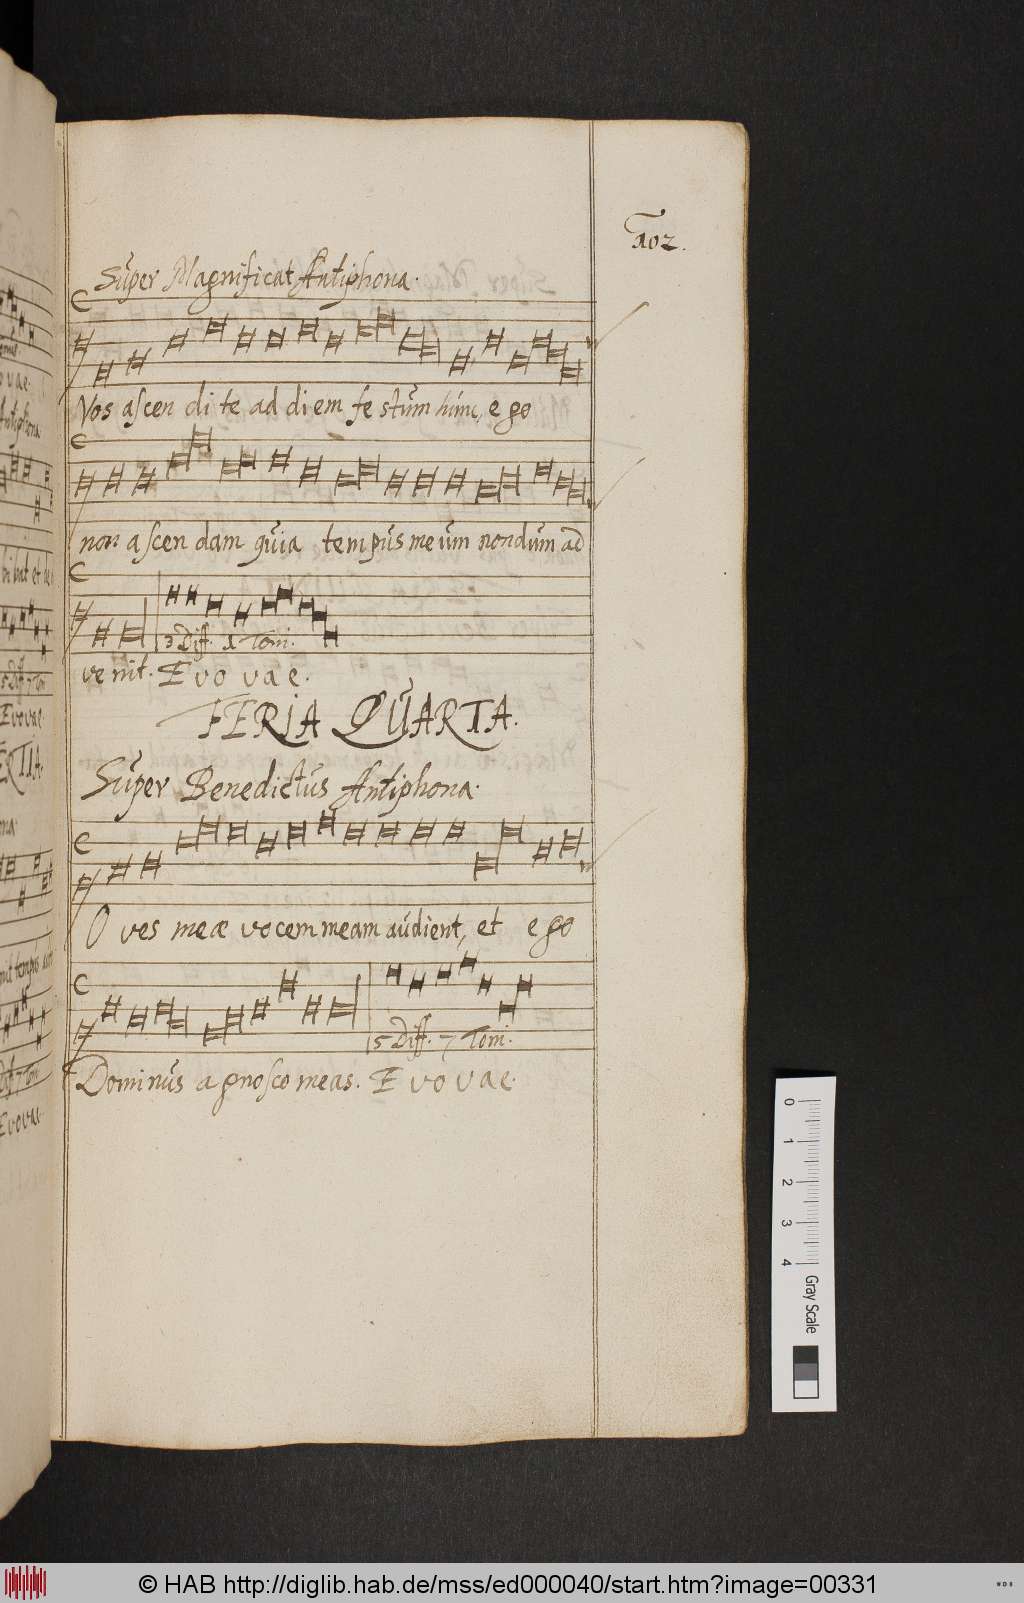 102.
Super Magnificat Antiphona.
Vos ascen di te ad diem fe stum hunc, e go
non ascen dam quia tempus meum nondum ad
3 Diff. 1 Toni.
ve nit. E vo vae.
FERIA QUARTA.
Super Benedictus Antiphona.
O ves meæ vocem meam audient, et ego
5 Diff. 7 Toni.
Dominus agnosco meas. E vo vae.
0 1 2 3 4 Gray Scale
© HAB http://diglib.hab.de/mss/ed000040/start.htm?image=00331